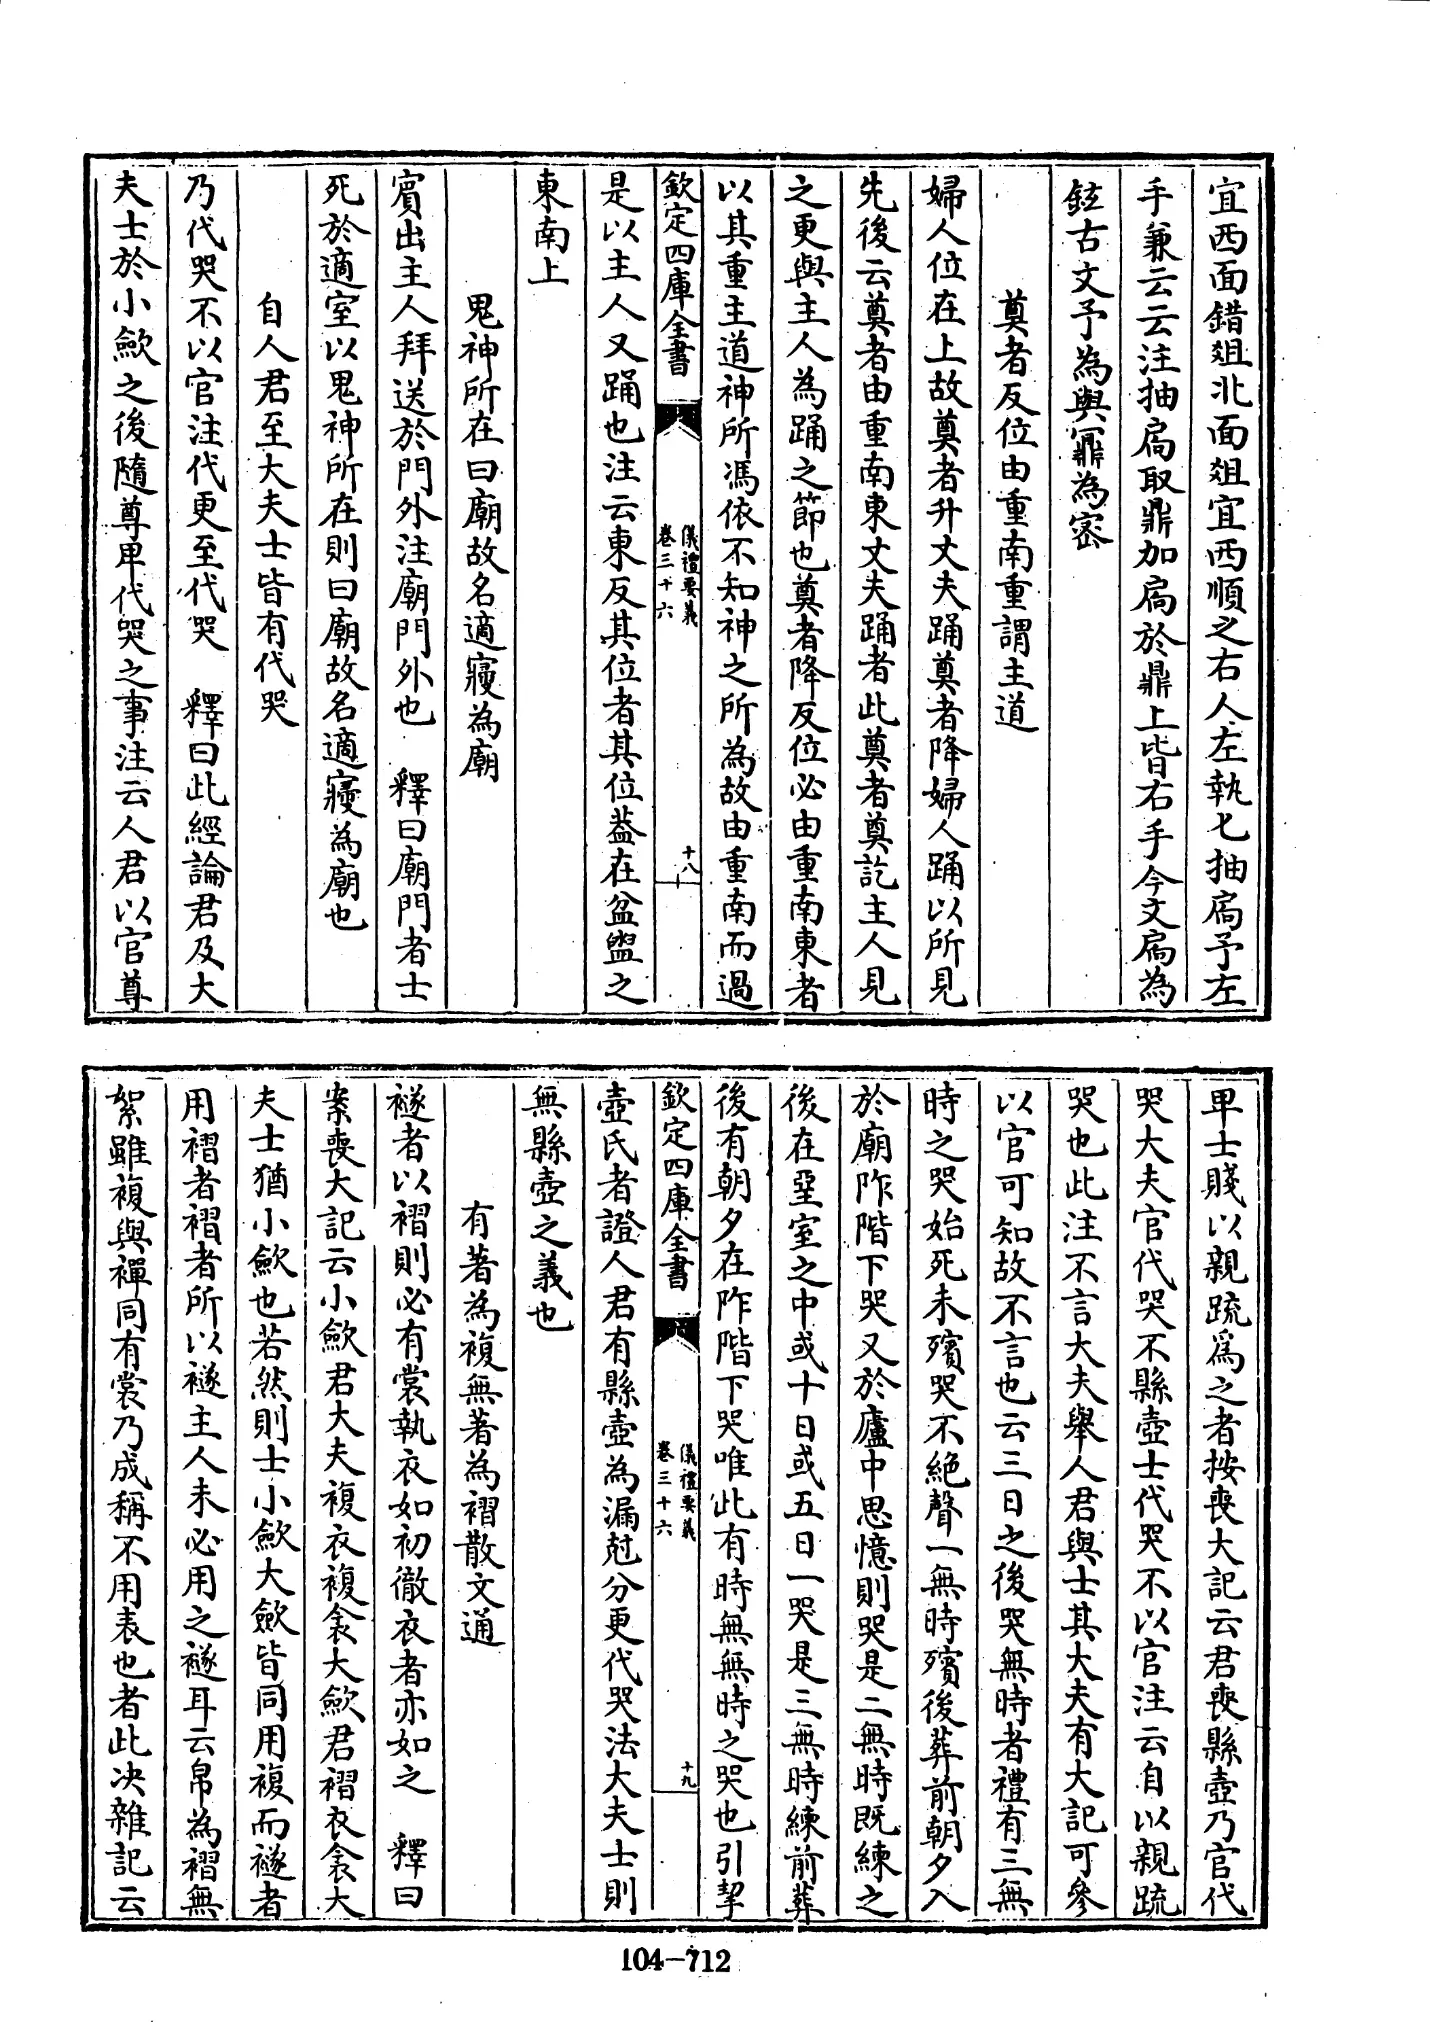 宜西面錯俎北面俎宜西順之右人左執匕抽扃予左
手兼云云注抽扃取鼎加扃於鼎上皆右手今文扃為
鉉古文予為與鼏為密
奠者反位由重南重謂主道
婦人位在上故奠者升丈夫踊奠者降婦人踊以所見
先後云奠者由重南東丈夫踊者此奠者奠訖主人見
之更與主人為踊之節也奠者降反位必由重南東者
以其重主道神所馮依不知神之所為故由重南而過
欽定四庫全書
儀禮要義
卷三十六
十八
是以主人又踊也注云東反其位者其位葢在盆盥之
東南上
鬼神所在曰廟故名適寢為廟
賓出主人拜送於門外注廟門外也 釋曰廟門者士
死於適室以鬼神所在則曰廟故名適寢為廟也
自人君至大夫士皆有代哭
乃代哭不以官注代更至代哭 釋曰此經論君及大
夫士於小歛之後隨尊卑代哭之事注云人君以官尊
卑士賤以親疏爲之者按喪大記云君喪縣壺乃官代
哭大夫官代哭不縣壺士代哭不以官注云自以親疏
哭也此注不言大夫舉人君與士其大夫有大記可參
以官可知故不言也云三日之後哭無時者禮有三無
時之哭始死未殯哭不絶聲一無時殯後葬前朝夕入
於廟阼階下哭又於廬中思憶則哭是二無時既練之
後在堊室之中或十日或五日一哭是三無時練前葬
後有朝夕在阼階下哭唯此有時無無時之哭也引挈
欽定四庫全書
儀禮要義
卷三十六
十九
壺氏者證人君有縣壺為漏尅分更代哭法大夫士則
無縣壺之義也
有著為複無著為褶散文通
襚者以褶則必有裳執衣如初徹衣者亦如之 釋曰
案喪大記云小歛君大夫複衣複衾大歛君褶衣衾大
夫士猶小歛也若然則士小歛大歛皆同用複而襚者
用褶者褶者所以襚主人未必用之襚耳云帛為褶無
絮雖複與襌同有裳乃成稱不用表也者此决雜記云
104-712